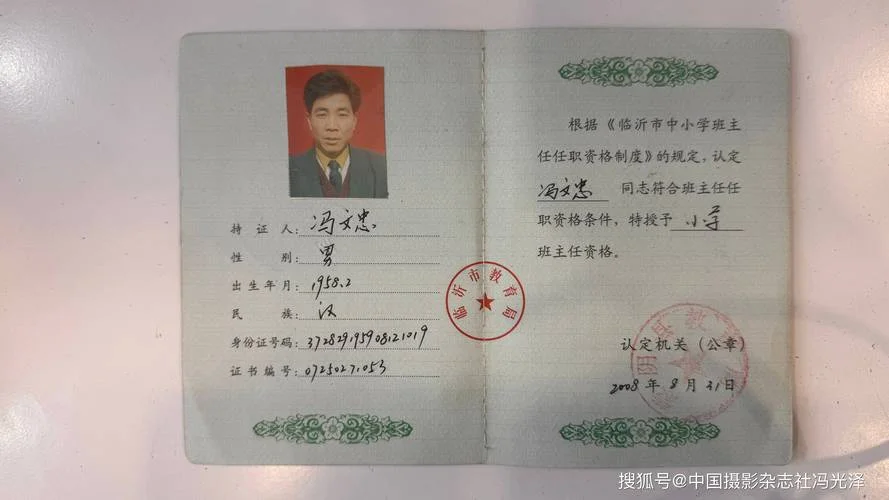 持证人：冯文忠
性别：男
出生年月：1958.2
民族：汉
身份证号码：372829195908121019
证书编号：0725021053
临沂市教育局
根据《临沂市中小学班主
任任职资格制度》的规定，认定
冯文忠 同志符合班主任任
职资格条件，特授予 小学
班主任资格。
认定机关（公章）
2008年8月31日
阴县教育
搜狐号@中国摄影杂志社冯光泽